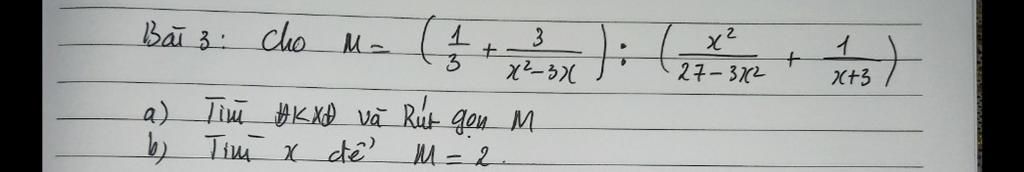 Bài 3: Cho M = (1/3 + 3/(x²-3x)) : (x²/(27-3x²) + 1/(x+3))
a) Tìm ĐKXĐ và Rút gọn M
b) Tìm x để M = 2.